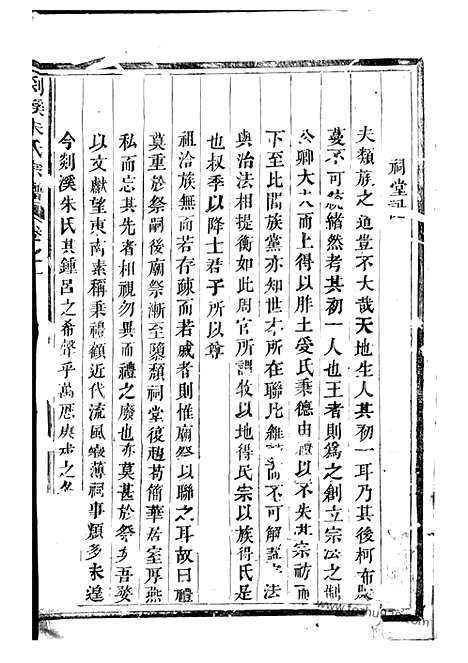 祠堂記
夫類族之道豈不大哉天地生人其初一耳乃其後柯布
蔓不可統緒然考其初一人也王者則爲之創立宗法之制
公卿大夫而上得以胙土受氏秉德由禮以不失其宗祊而
下至比閭族黨亦知世才所在聯比雜 不可解 法
與治法相提衡如此周官所謂牧以地得民宗以族得民是
也权季以降士君子所以尊
祖洽族無而若存疎而若戚者則惟廟祭以聯之耳故曰禮
莫重於祭嗣後廟祭漸至隳頽祠堂復趋苟簡華居室厚燕
私而忘其先者相視勿異而禮之廢也亦莫甚於祭 吾婺
以文獻望東南素稱秉禮顧近代流風寖薄祠事類多未遑
今剡溪朱氏其鍾呂之希聲乎萬歷庚戌之冬
剡溪朱氏宗譜 卷之一